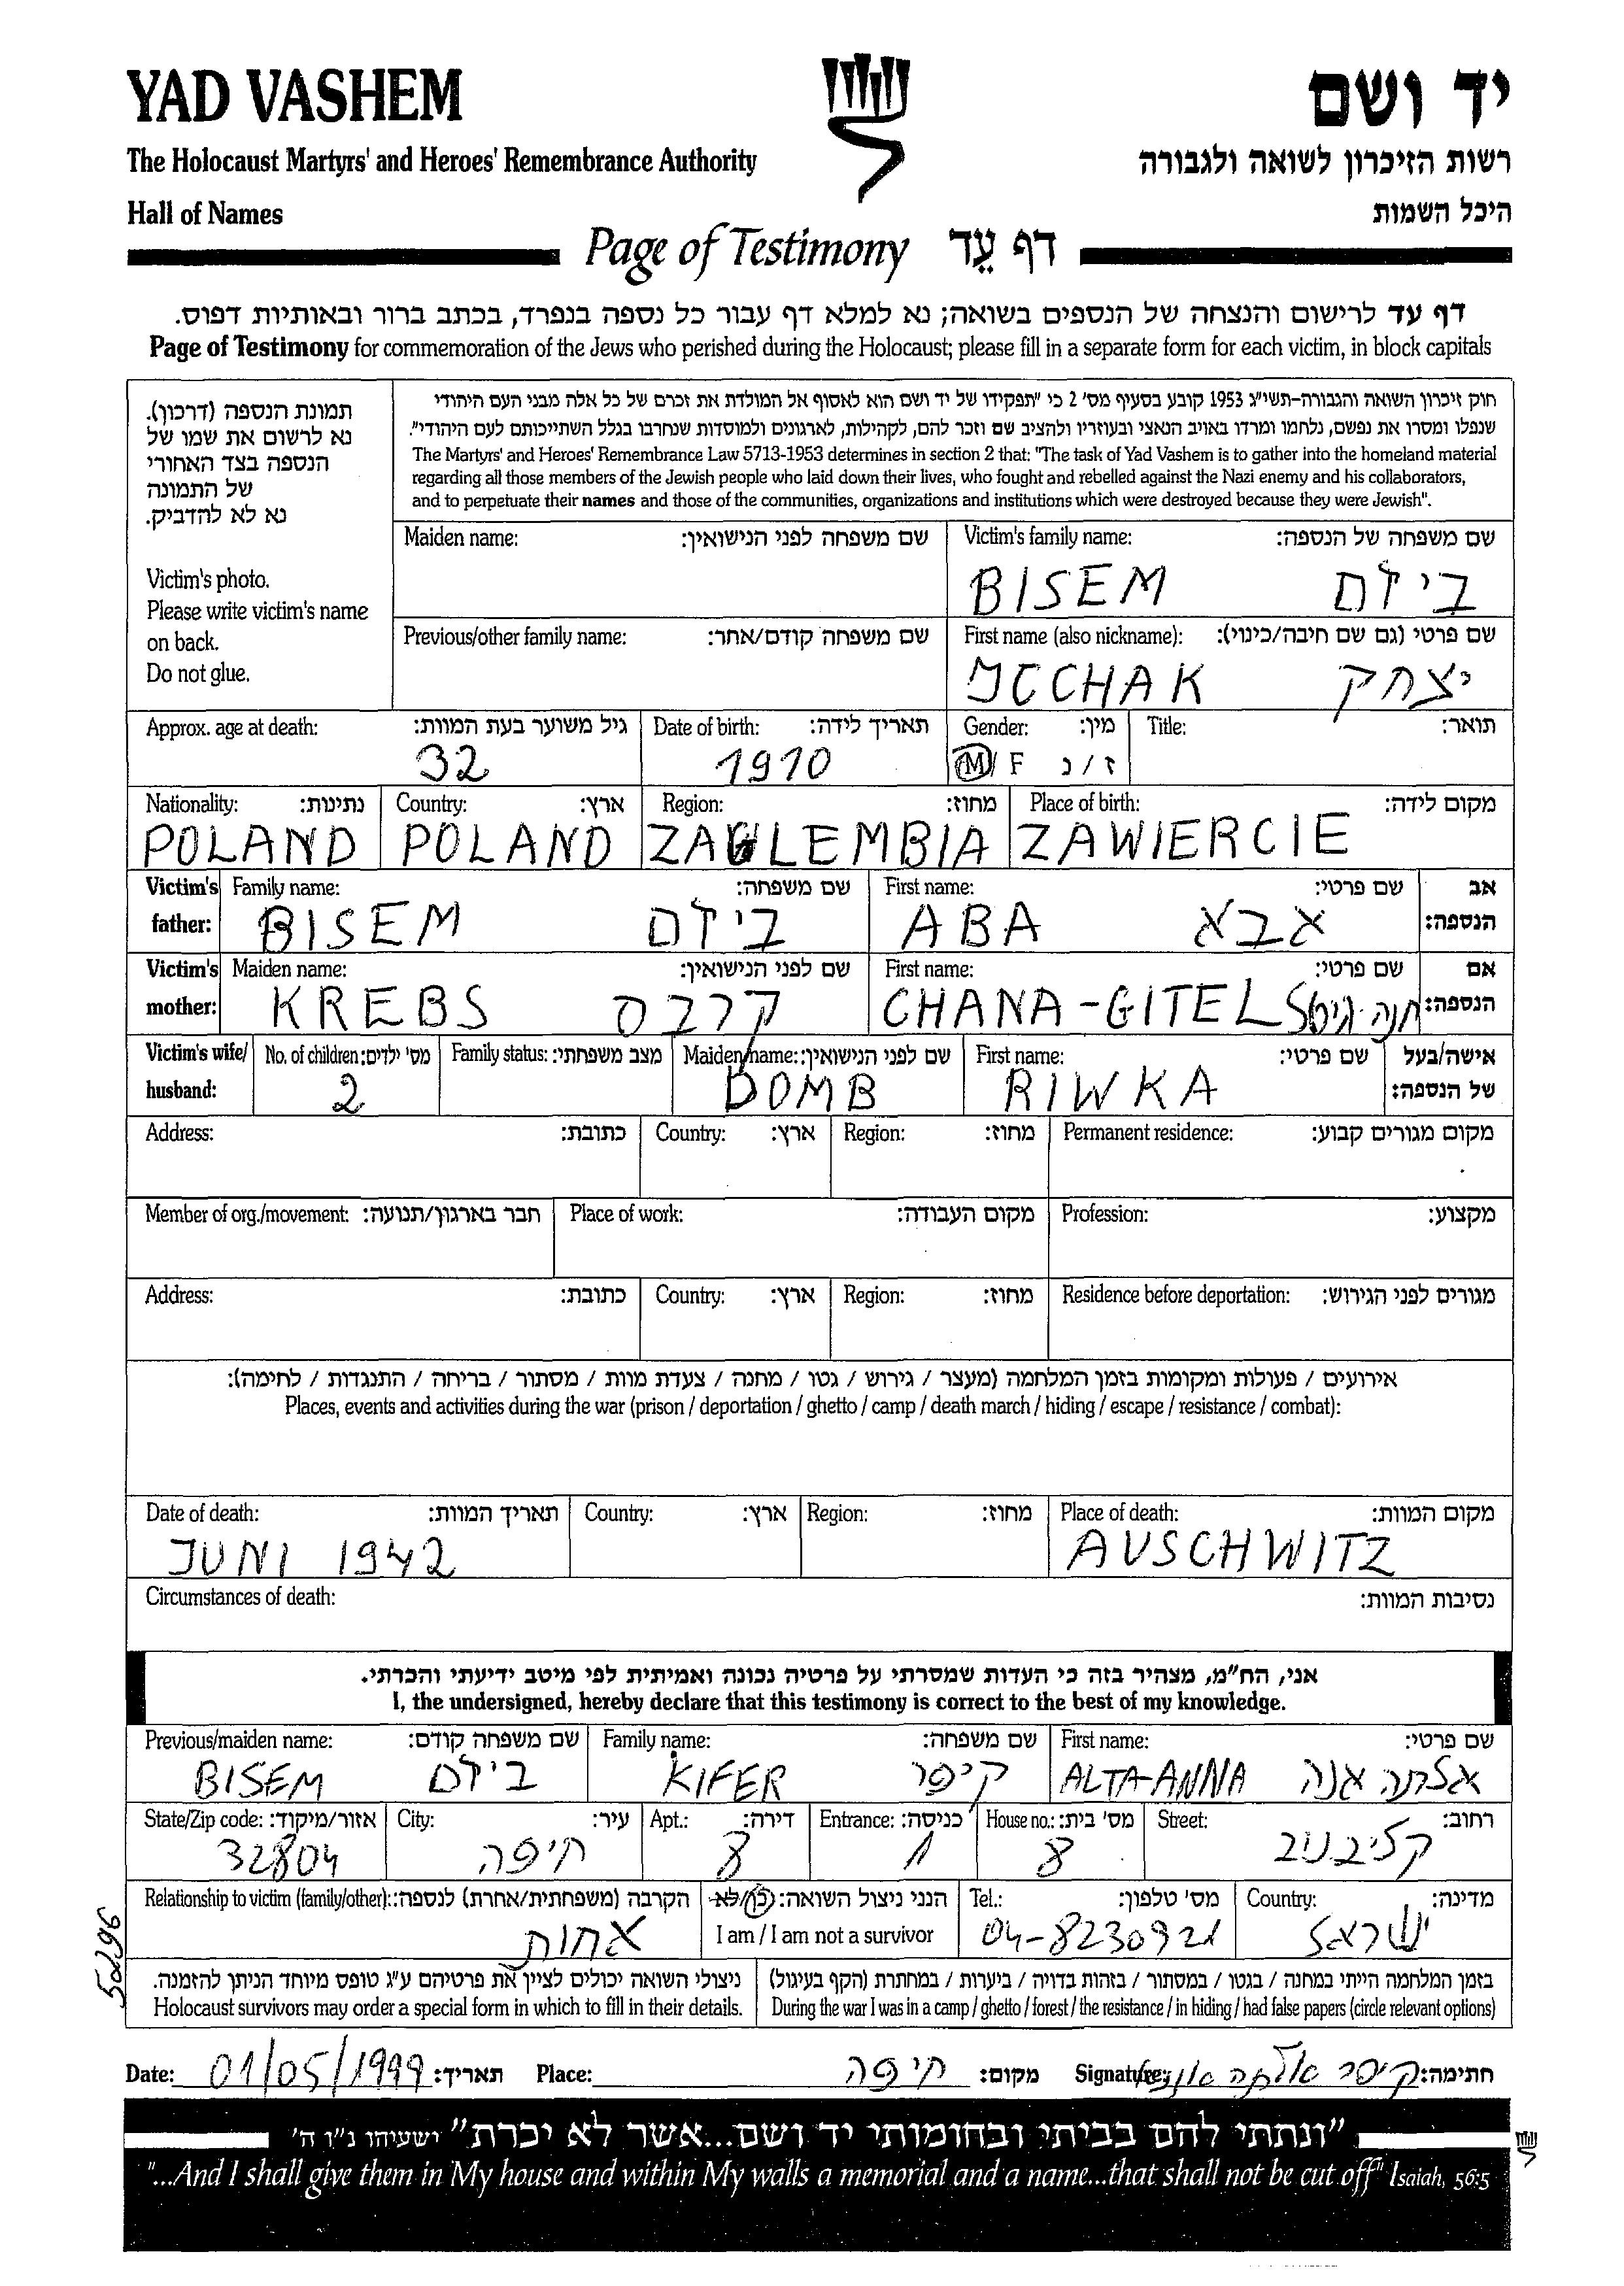 YAD VASHEM
יד ושם
The Holocaust Martyrs' and Heroes' Remembrance Authority
רשות הזיכרון לשואה ולגבורה
Hall of Names
היכל השמות
Page of Testimony דף עֵד
דף עד לרישום והנצחה של הנספים בשואה; נא למלא דף עבור כל נספה בנפרד, בכתב ברור ובאותיות דפוס.
Page of Testimony for commemoration of the Jews who perished during the Holocaust; please fill in a separate form for each victim, in block capitals
תמונת הנספה (דרכון).
נא לרשום את שמו של
הנספה בצד האחורי
של התמונה
נא לא להדביק.
Victim's photo.
Please write victim's name
on back.
Do not glue.
חוק זיכרון השואה והגבורה-תשי"ג 1953 קובע בסעיף מס' 2 כי "תפקידו של יד ושם הוא לאסוף אל המולדת את זכרם של כל אלה מבני העם היהודי
שנפלו ומסרו את נפשם, נלחמו ומרדו באויב הנאצי ובעוזריו ולהציב שם וזכר להם, לקהילות, לארגונים ולמוסדות שנחרבו בגלל השתייכותם לעם היהודי".
The Martyrs' and Heroes' Remembrance Law 5713-1953 determines in section 2 that: "The task of Yad Vashem is to gather into the homeland material
regarding all those members of the Jewish people who laid down their lives, who fought and rebelled against the Nazi enemy and his collaborators,
and to perpetuate their names and those of the communities, organizations and institutions which were destroyed because they were Jewish".
Maiden name: שם משפחה לפני הנישואין:
Victim's family name: שם משפחה של הנספה:
BISEM ביזם
Previous/other family name: שם משפחה קודם/אחר:
First name (also nickname): שם פרטי (גם שם חיבה/כינוי):
ICCHAK יצחק
Approx. age at death: גיל משוער בעת המוות: Date of birth: תאריך לידה: Gender: מין: Title: תואר:
32 1910 M/ F ז / נ
Nationality: נתינות: Country: ארץ: Region: מחוז: Place of birth: מקום לידה:
POLAND POLAND ZAGLEMBIA ZAWIERCIE
Victim's father: Family name: שם משפחה: First name: שם פרטי: אב הנספה:
BISEM ביזם ABA אבא
Victim's mother: Maiden name: שם לפני הנישואין: First name: שם פרטי: אם הנספה:
KREBS קרבס CHANA-GITEL חנה גיטל
Victim's wife/ husband: No. of children: מס' ילדים: Family status: מצב משפחתי: Maiden name: שם לפני הנישואין: First name: שם פרטי: אישה/בעל של הנספה:
2 DOMB RIWKA
Address: כתובת: Country: ארץ: Region: מחוז: Permanent residence: מקום מגורים קבוע:
Member of org./movement: חבר בארגון/תנועה: Place of work: מקום העבודה: Profession: מקצוע:
Address: כתובת: Country: ארץ: Region: מחוז: Residence before deportation: מגורים לפני הגירוש:
אירועים / פעולות ומקומות בזמן המלחמה (מעצר / גירוש / גטו / מחנה / צעדת מוות / מסתור / בריחה / התנגדות / לחימה):
Places, events and activities during the war (prison / deportation / ghetto / camp / death march / hiding / escape / resistance / combat):
Date of death: תאריך המוות: Country: ארץ: Region: מחוז: Place of death: מקום המוות:
JUNI 1942 AUSCHWITZ
Circumstances of death: נסיבות המוות:
אני, הח"מ, מצהיר בזה כי העדות שמסרתי על פרטיה נכונה ואמיתית לפי מיטב ידיעתי והכרתי.
I, the undersigned, hereby declare that this testimony is correct to the best of my knowledge.
Previous/maiden name: שם משפחה קודם: Family name: שם משפחה: First name: שם פרטי:
BISEM ביזם KIFER קיפר ALTA-ANNA אלתה אנה
State/Zip code: אזור/מיקוד: City: עיר: Apt.: דירה: Entrance: כניסה: House no.: מס' בית: Street: רחוב:
32804 חיפה 8 1 8
Relationship to victim (family/other): הקרבה (משפחתית/אחרת) לנספה: הנני ניצול השואה: כן/לא Tel.: מס' טלפון: Country: מדינה:
אחות I am / I am not a survivor 04-8230921 ישראל
52296
ניצולי השואה יכולים לציין את פרטיהם ע"ג טופס מיוחד הניתן להזמנה.
Holocaust survivors may order a special form in which to fill in their details.
בזמן המלחמה הייתי במחנה / בגטו / במסתור / בזהות בדויה / ביערות / במחתרת (הקף בעיגול)
During the war I was in a camp / ghetto / forest / the resistance / in hiding / had false papers (circle relevant options)
Date: 01/05/1999 תאריך: Place: חיפה מקום: Signature: קיפר אלתה אנה חתימה:
"ונתתי להם בביתי ובחומותי יד ושם...אשר לא יכרת" ישעיהו נ"ו ה'
"...And I shall give them in My house and within My walls a memorial and a name...that shall not be cut off" Isaiah, 56:5